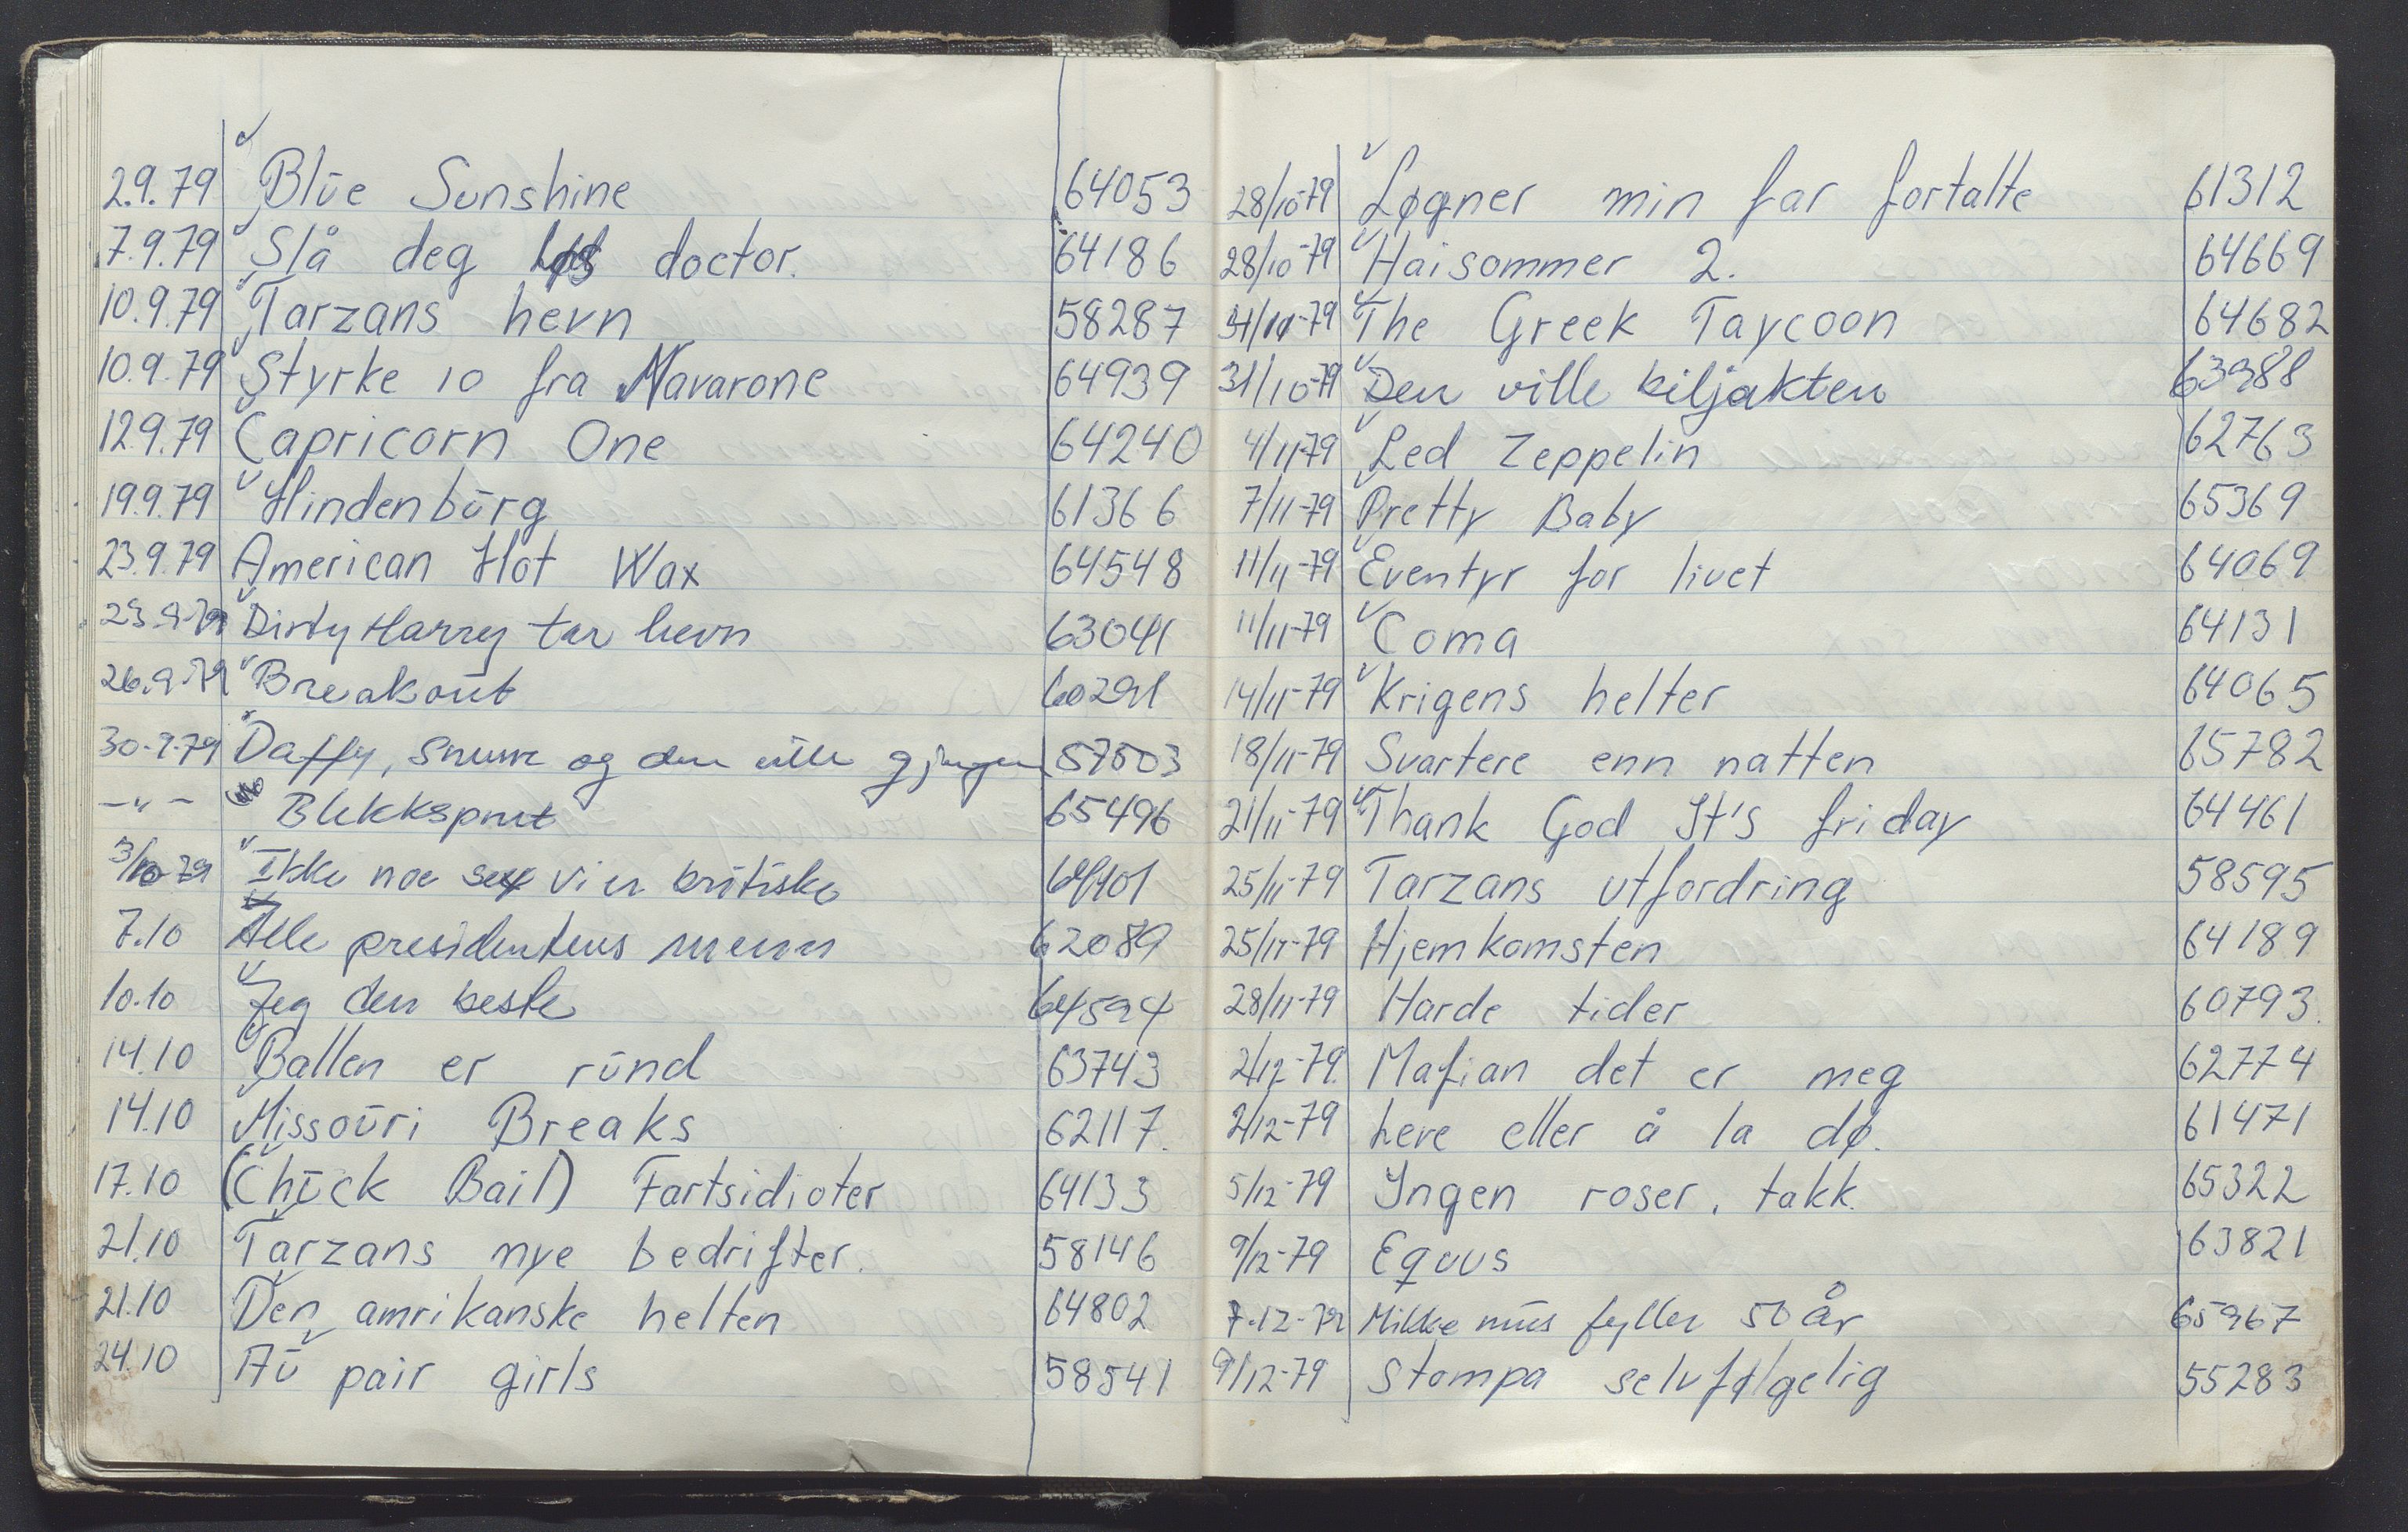 2.9.79 Blūe Sunshine 64053
7.9.79 Slå deg løs doctor. 64186
10.9.79 Tarzans hevn 58287
10.9.79 Styrke 10 fra Navarone 64939
12.9.79 Capricorn One 64240
19.9.79 Hindenbūrg 61366
23.9.79 American Hot Wax 64548
23.9.79 Dirty Harry tar hevn 63041
26.9.79 Breakoūt 60291
30.9.79 Daffy, Snurre og den ville gjengen 57503
-"- Blekksprut 65496
3/10-79 Ikke noe sex vi er brītiske
7.10 Alle presidentens menn 62089
10.10 Jeg den beste 64594
14.10 Ballen er rūnd 63743
14.10 Missoūri Breaks 62117.
17.10 (Chūck Bail) Fartsidioter 64133
21.10 Tarzans nye bedrifter. 58146
21.10 Den amrikanske helten 64802
24.10 Aū pair girls 58541
28/10-79 Løgner min far fortalte 61312
28/10-79 Haisommer 2. 64669
31/10-79 The Greek Taycoon 64682
31/10-79 Den ville biljakten 63988
4/11-79 Led Zeppelin 62763
7/11-79 Pretty Baby 65369
11/11-79 Eventyr for livet 64069
11/11-79 Coma 64131
14/11-79 Krigens helter 64065
18/11-79 Svartere enn natten 65782
21/11-79 Thank God It's friday 64461
25/11-79 Tarzans utfordring 58595
25/11-79 Hjemkomsten 64189
28/11-79 Harde tider 60793.
2/12-79. Mafian det er meg 62774
2/12-79 Leve eller å la dø. 61471
5/12-79 Ingen roser, takk. 65322
9/12-79 Equus 63821
7-12-79 Mikke mūs fyller 50 år 65967
9/12-79 Stompa selvfølgelig 55283